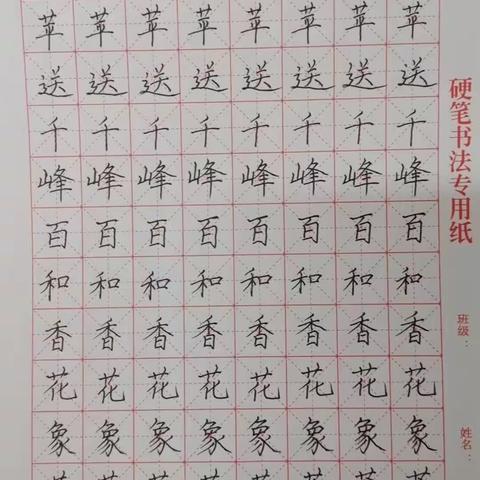 苹苹苹苹苹苹苹苹
送送送送送送送送
千千千千千千千千
峰峰峰峰峰峰峰峰
百百百百百百百百
和和和和和和和和
香香香香香香香香
花花花花花花花花
象象象象象象象象
硬笔书法专用纸
班级：
姓名：